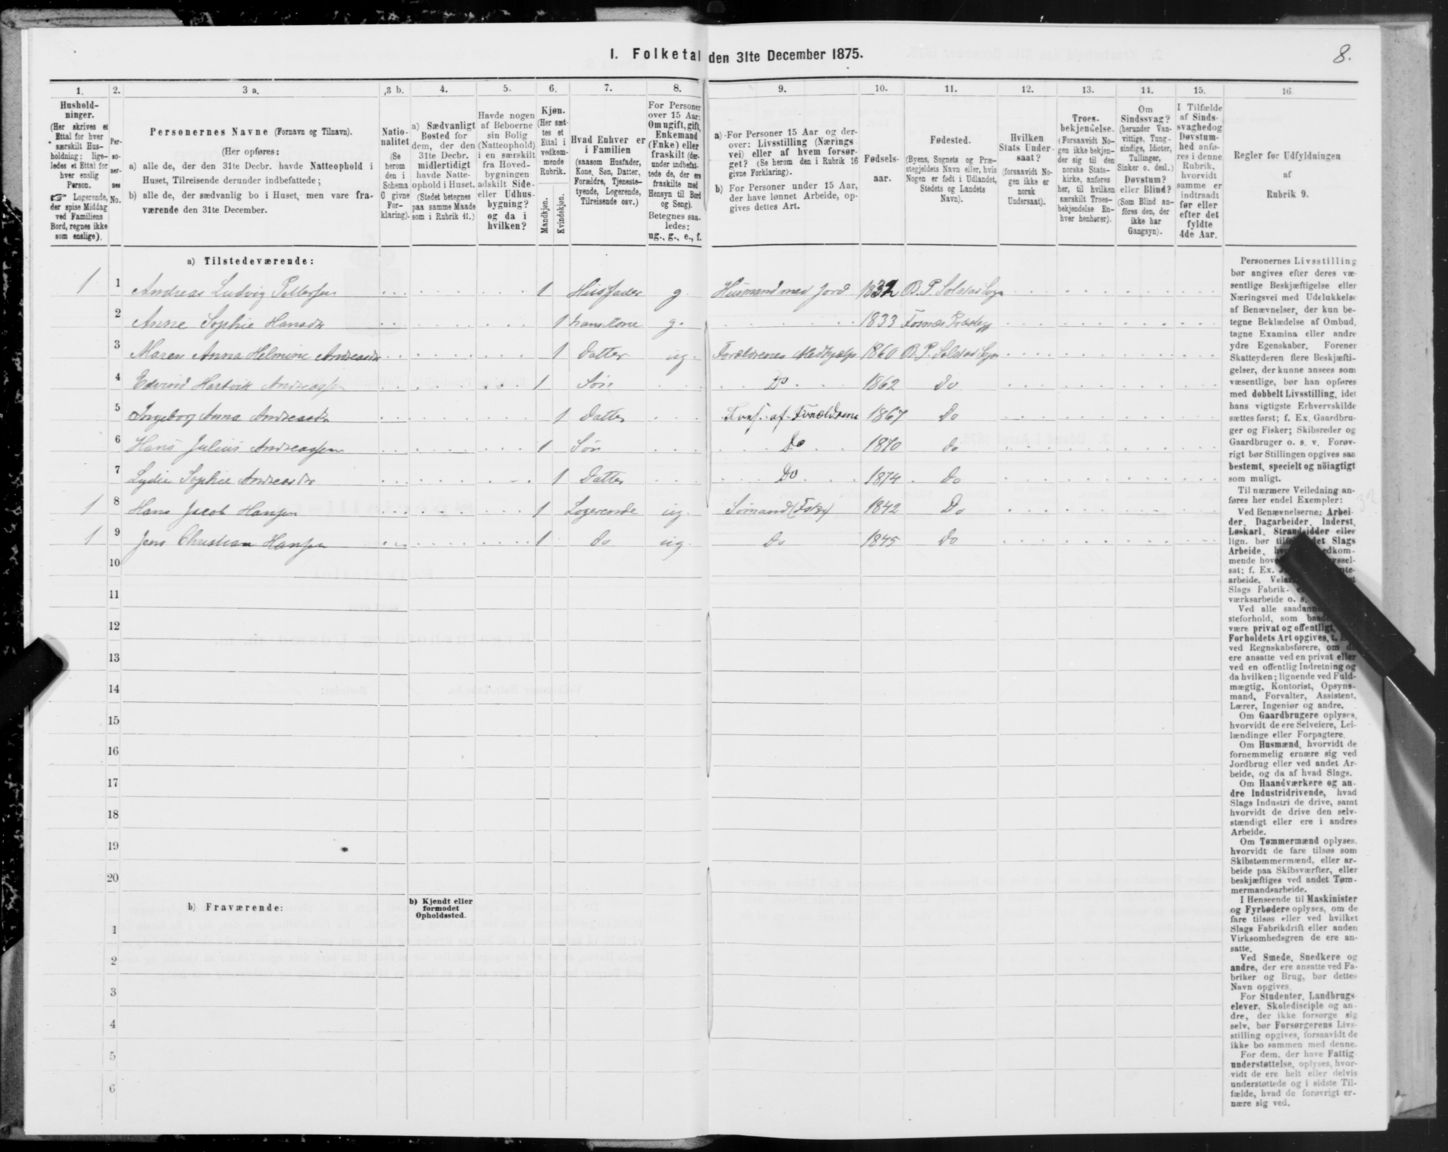 I. Folketal den 31te December 1875.
8.
1. 2. 3 a. 3 b. 4. 5. 6. 7. 8. 9. 10. 11. 12. 13. 14. 15. 16
Hushold-
ninger.
(Her skrives et
Ettal for hver
særskilt Hus-
holdning; lige-
ledes et Ettal for
hver enslig
Person.
☞ Logerende,
der spise Middag
ved Familiens
Bord, regnes ikke
som enslige).
Per-
so-
ner-
nes
No.
Personernes Navne (Fornavn og Tilnavn).
(Her opføres:
a) alle de, der den 31te Decbr. havde Natteophold i
Huset, Tilreisende derunder indbefattede;
b) alle de, der sædvanlig bo i Huset, men vare fra-
værende den 31te December.
Natio-
nalitet
(Se
herom
den i
Schema
0 givne
For-
klaring).
a) Sædvanligt
Bosted for
dem, der den
31te Decbr.
midlertidigt
havde Natte-
ophold i Huset.
(Stedet betegnes
paa samme Maade
som i Rubrik 11.)
Havde nogen
af Beboerne
sin Bolig
(Natteophold)
i en særskilt
fra Hoved-
bygningen
adskilt Side-
eller Udhus-
bygning?
og da i
hvilken?
Kjøn.
(Her sæt-
tes et
Ettal i
vedkom-
mende
Rubrik.
Mandkjøn.
Kvindekjøn.
Hvad Enhver er
i Familien
(saasom Husfader,
Kone, Søn, Datter,
Forældre, Tjeneste-
tyende, Logerende,
Tilreisende osv.)
For Personer
over 15 Aar:
Om ugift, gift,
Enkemand
(Enke) eller
fraskilt (der-
under indbefat-
tede de, der ere
fraskilte med
Hensyn til Bord
og Seng).
Betegnes saa-
ledes:
ug., g., e., f.
a) For Personer 15 Aar og der-
over: Livsstilling (Nærings
vei) eller af hvem forsør-
get? (Se herom den i Rubrik 16
givne Forklaring).
b) For Personer under 15 Aar,
der have lønnet Arbeide, op-
gives dettes Art.
Fødsels-
aar.
Fødested.
(Byens, Sognets og Præ-
stegjeldets Navn eller, hvis
Nogen er født i Udlandet,
Stedets og Landets
Navn).
Hvilken
Stats Under-
saat?
(forsaavidt No-
gen ikke er
norsk
Undersaat).
Troes-
bekjendelse.
(Forsaavidt No-
gen ikke bekjen-
der sig til den
norske Stats-
kirke, anføres
her, til hvilken
særskilt Troes-
bekjendelse En-
hver henhører).
Om
Sindssvag?
(herunder Van-
vittige, Tung-
sindige, Idioter,
Tullinger,
Sinker o. desl.)
Døvstum?
eller Blind?
(Som Blind an-
føres den, der
ikke har
Gangsyn).
I Tilfælde
af Sinds-
svaghed og
Døvstum-
hed anfø-
res i denne
Rubrik,
hvorvidt
samme er
indtraadt
før eller
efter det
fyldte
4de Aar.
Regler før Udfyldningen
af
Rubrik 9.
a) Tilstedeværende:
1 1 Andreas Ludvig Pettersen 1 Husfader g. Husmand med Jord 1832 B. P. Solstad Sogn
2 Anne Sophie Hansdr 1 hans Kone g. 1833
3 Maren Anna Helmine Andreasdr 1 Datter ug. 1860 B. P. Solstad Sogn
4 Edvind Hartvik Andreassen 1 Søn Do 1862 Do
5 Ingeborg Anna Andreasdr 1 Datter Fors. af Forældrene 1867 Do
6 Hans Julius Andreassen 1 Søn Do 1870 do
7 Lydie Sophie Andreasdr 1 Datter Do 1874 Do
1 8 Hans Jacob Hansen 1 Logerende ug. 1842 Do
1 9 Jens Christian Hansen 1 do ug. Do 1845 Do
10
11
12
13
14
15
16
17
18
19
20
b) Fraværende:
b) Kjendt eller
formodet
Opholdssted.
1
2
3
4
5
6
Personernes Livsstilling
bør angives efter deres væ-
sentlige Beskjæftigelse eller
Næringsvei med Udelukkelse
af Benævnelser, der kun be-
tegne Beklædelse af Ombud,
tagne Examina eller andre
ydre Egenskaber. Forener
Skatteyderen flere Beskjæfti-
gelser, der kunne ansees som
væsentlige, bør han opføres
med dobbelt Livsstilling, idet
hans vigtigste Erhvervskilde
sættes først; f. Ex. Gaardbru-
ger og Fisker; Skibsreder og
Gaardbruger o. s. v. Forøv-
rigt bør Stillingen opgives saa
bestemt, specielt og nöiagtigt
som muligt.
Til nærmere Veiledning an-
føres her endel Exempler:
Ved Benævnelserne: Arbei-
der, Dagarbeider, Inderst,
Løskarl, Strandsidder eller
lign. bør Slags
Arbeide,
mende
sat; f. Ex.
arbeide,
Slags Fabrik-
værksarbeide o. s.
Ved alle
steforhold, som
være privat og offentligt,
Forholdets Art opgives,
ved Regnskabsførere, om de
ere ansatte ved en privat eller
ved en offentlig Indretning og
da hvilken; lignende ved Fuld-
mægtig, Kontorist, Opsyns-
mand, Forvalter, Assistent,
Lærer, Ingeniør og andre.
Om Gaardbrugere oplyses,
hvorvidt de ere Selveiere, Lei-
lændinge eller Forpagtere.
Om Husmænd, hvorvidt de
fornemmelig ernære sig ved
Jordbrug eller ved andet Ar-
beide, og da af hvad Slags.
Om Haandværkere og an-
dre Industridrivende, hvad
Slags Industri de drive, samt
hvorvidt de drive den selv-
stændigt eller ere i andres
Arbeide.
Om Tømmermænd oplyses,
hvorvidt de fare tilsøs som
Skibstømmermænd, eller ar-
beide paa Skibsværfter, eller
beskjæftiges ved andet Tøm-
mermandsarbeide.
I Henseende til Maskinister
og Fyrbødere oplyses, om de
fare tilsøs eller ved hvilket
Slags Fabrikdrift eller anden
Virksomhedsgren de ere an-
satte.
Ved Smede, Snedkere og
andre, der ere ansatte ved Fa-
briker og Brug, bør dettes
Navn opgives.
For Studenter, Landbrugs-
elever, Skoledisciple og an-
dre, der ikke forsørge sig
selv, bør Forsørgerens Livs-
stilling opgives, forsaavidt de
ikke bo sammen med denne.
For dem, der have Fattig-
understøttelse, oplyses, hvor-
vidt de ere helt eller delvis
understøttede og i sidste Til-
fælde, hvad de forøvrigt er-
nære sig ved.